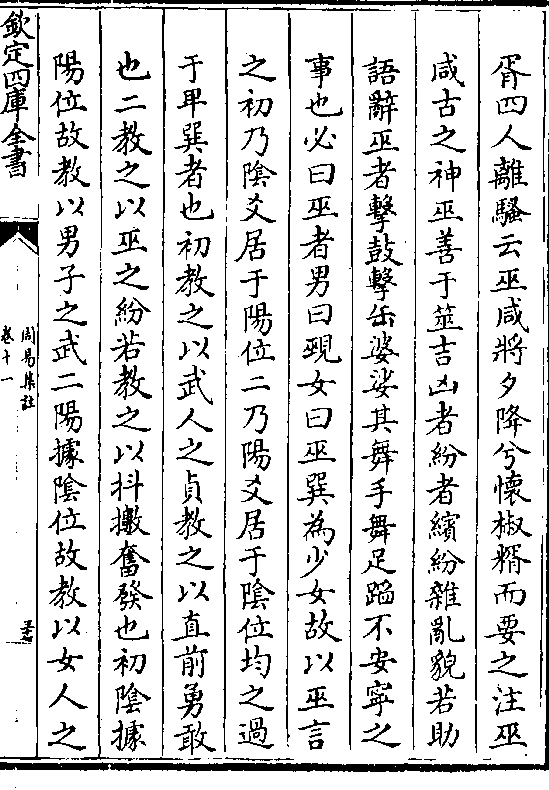 胥四人離騷云巫咸將夕降兮懷椒糈而要之注巫
咸古之神巫善于筮吉凶者紛者繽紛雜亂貌若助
語辭巫者擊鼓擊缶婆娑其舞手舞足蹈不安寧之
事也必曰巫者男曰覡女曰巫巽為少女故以巫言
之初乃陰爻居于陽位二乃陽爻居于陰位均之過
于卑巽者也初教之以武人之貞教之以直前勇敢
也二教之以巫之紛若教之以抖擻奮發也初陰據
陽位故教以男子之武二陽據陰位故教以女人之
欽定四庫全書
周易集註
卷十一